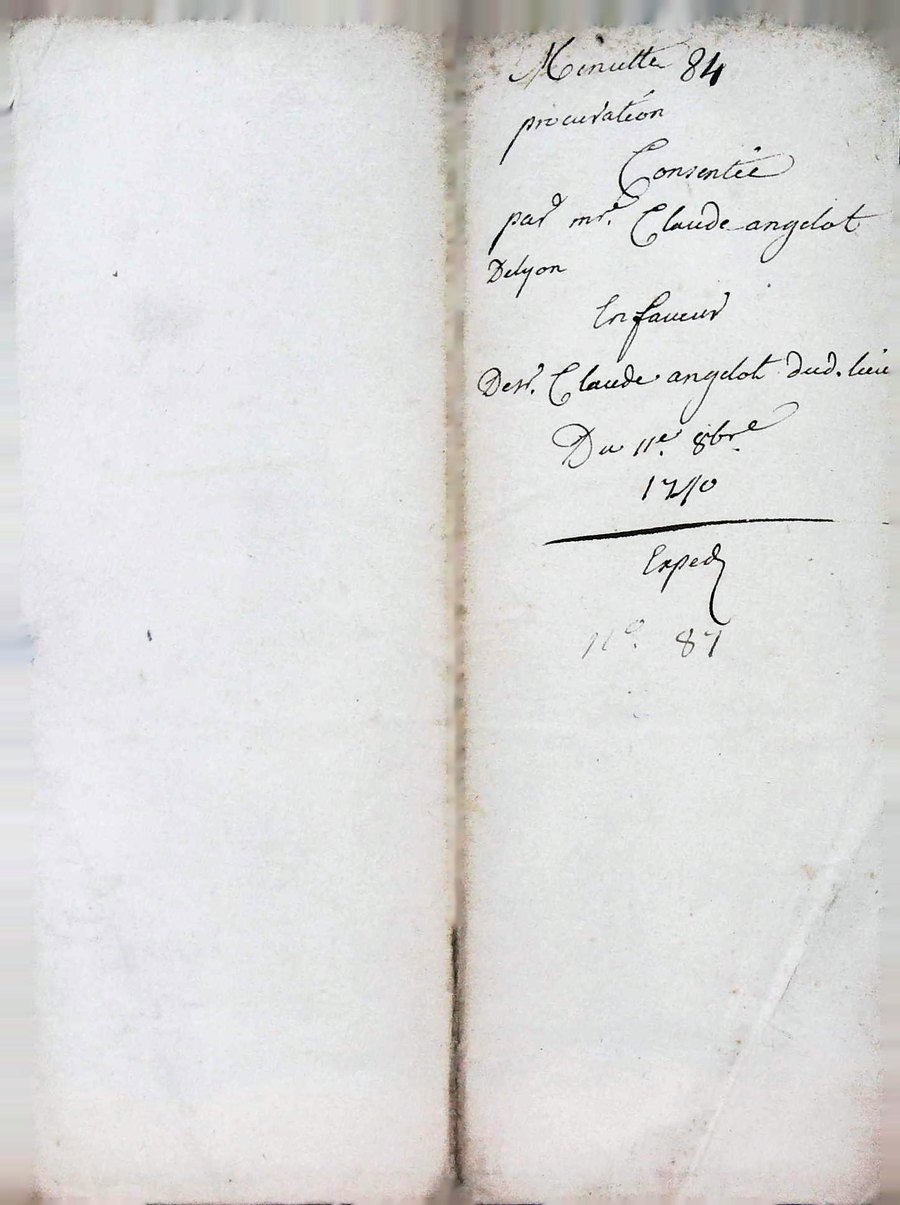 Minutte 84
procuration
Consentie
par mre. Claude angelot
Delyon
En faveur
De sr. Claude angelot dud. lieu
Du 11e. 8bre.
Exped
No. 87